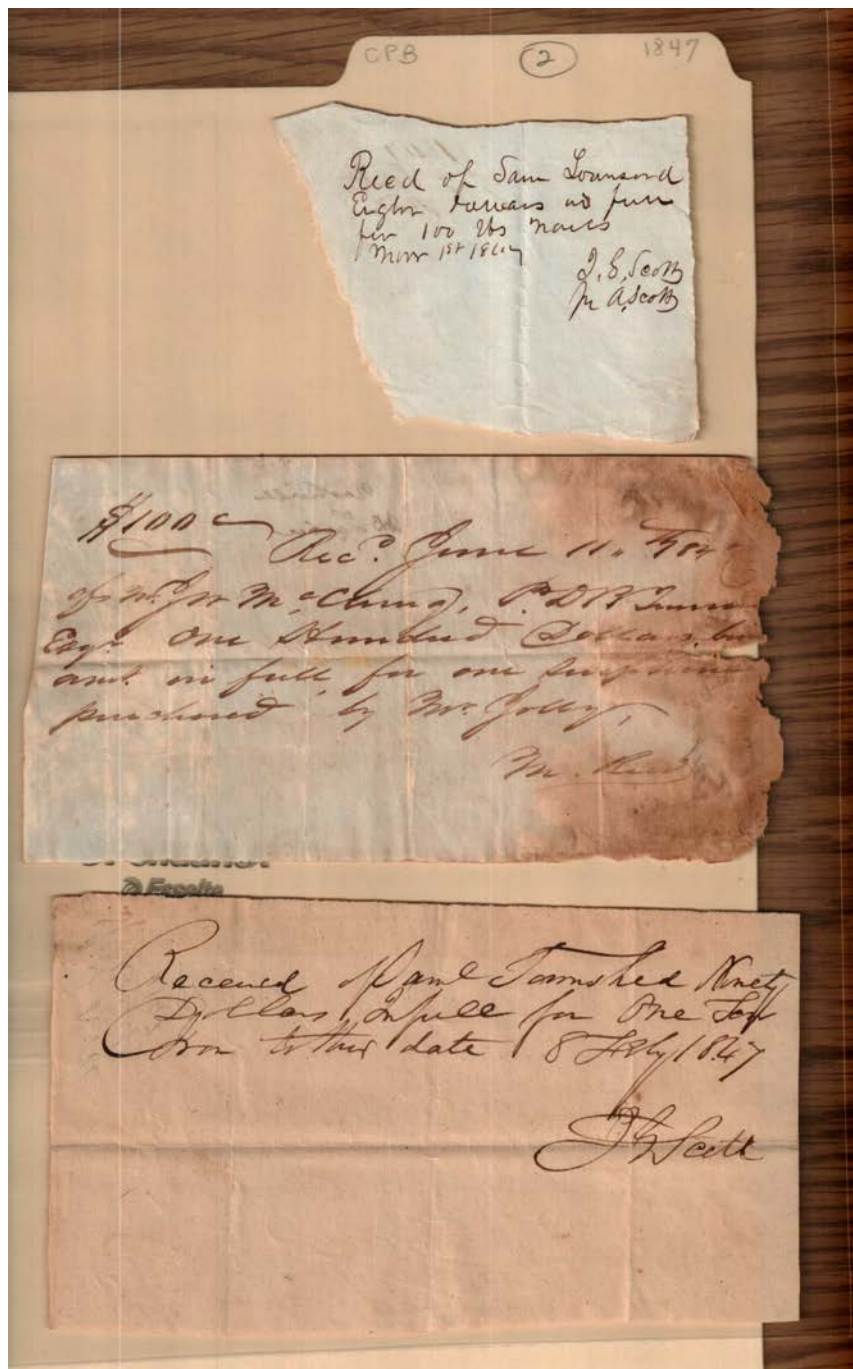 CPB 2 1847
Recd of Sam Townsend
Eight Dollars in full
for 100 lbs nails
1st 1847
J. E. Scott
A. Scott
$100
Recd. June 11
of McClung, P.
Esqr. One Hundred Dollars
in full for one
purchased by Mr. Jolly,
M.
Esselte
Received of Saml Townshed Ninety
Dollars In full for One Ton
Iron to this date 8 Feby 1847
J E Scott